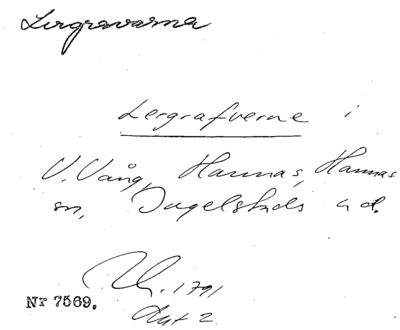 Lergravarna
Lergrafverne i
V. Vång, Hannas, Hannas
sn, Ingelstads hd.
1791
Akt 2
Nr 7569.